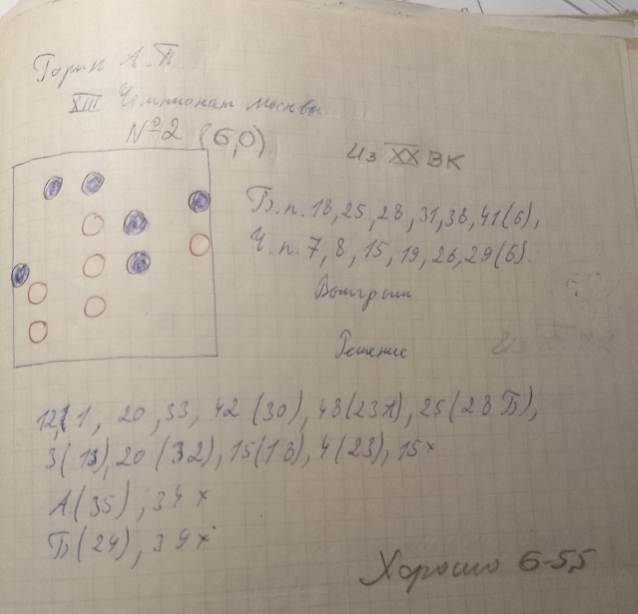 Горин А.П
XIII Чемпионат Москвы
№2 (6,0)
Из XX ВК
Б.п. 18, 25, 28, 31, 38, 41(6),
Ч.п. 7, 8, 15, 19, 26, 29(6).
Выигрыш
Решение
1, 20, 33, 42 (30), 48(23А), 25(28Б),
3(13), 20 (32), 15(18), 4(23), 15×
А(35), 34 ×
Б(24), 39 ×
Хорошо 6-5,5